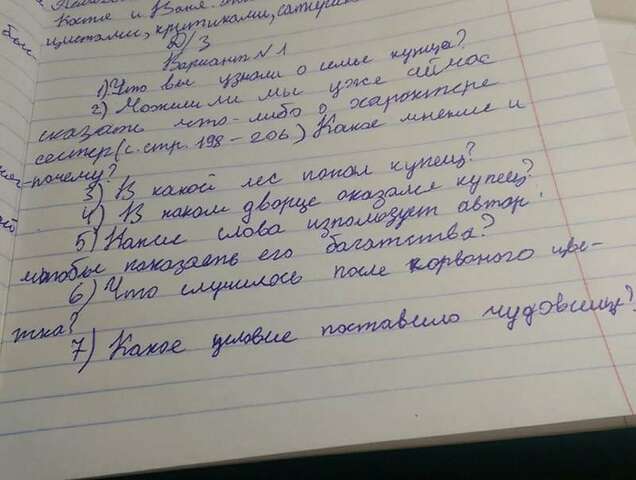 Костя и Ваня.
цистами, критиками, сатирик
Д/З
Вариант N1
1) Что вы узнали о семье купца?
2) Можем ли мы уже сейчас
сказать что-либо о характере
сестер (с. стр. 198 - 206) Какое мнение и
почему?
3) В какой лес попал купец?
4) В каком дворце оказался купец?
5) Какие слова использует автор,
чтобы показать его богатства?
6) Что случилось после сорваного цве-
тка?
7) Какое условие поставило чудовище?